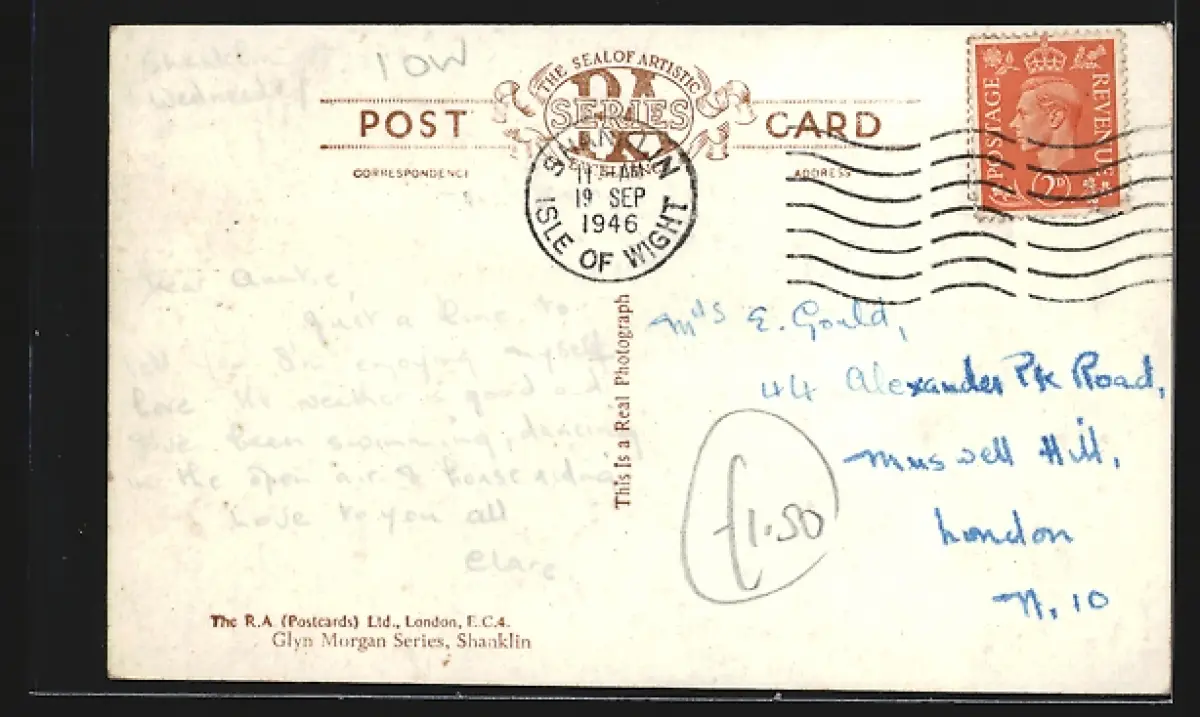 Shanklin
Wednesday
IOW
THE SEAL OF ARTISTIC
RA
SERIES
POST CARD
CORRESPONDENCE
ADDRESS
SHANKLIN
11 - AM
19 SEP
1946
ISLE OF WIGHT
POSTAGE REVENUE
2D
Dear Auntie,
Just a line to
let you I'm enjoying myself
here. The weather is good and
I've been swimming, dancing
in the open air & horse riding
Love to you all
Clare
This is a Real Photograph
Mrs E. Gould,
44 Alexander Pk Road,
Muswell Hill,
London
N. 10
£1.50
The R.A. (Postcards) Ltd., London, E.C.4.
Glyn Morgan Series, Shanklin